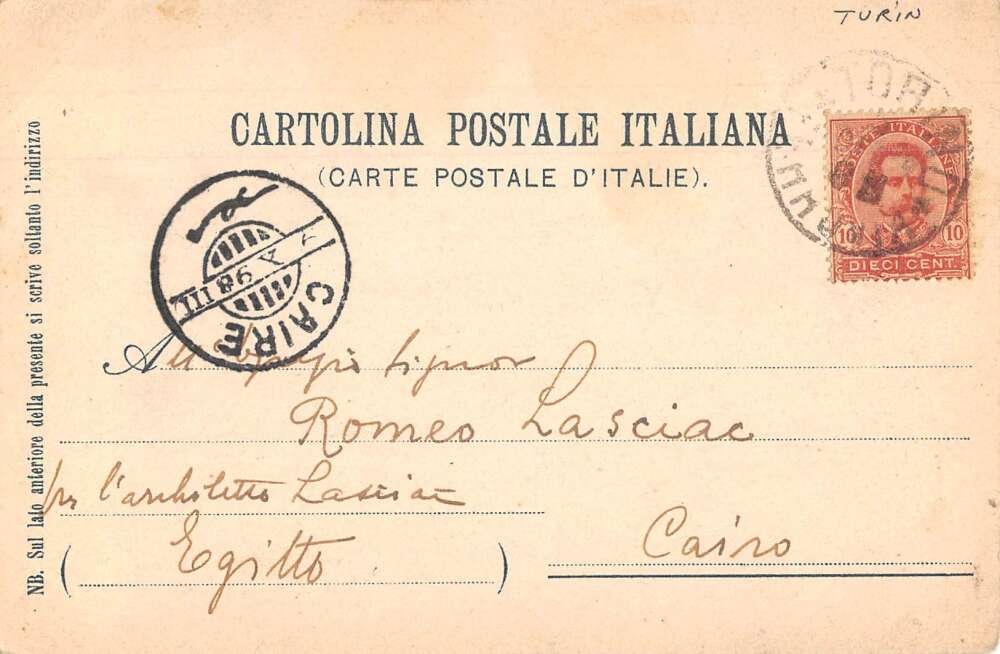 TURIN
CARTOLINA POSTALE ITALIANA
(CARTE POSTALE D'ITALIE).
TORINO
POSTE ITALIANE
10 10
DIECI CENT.
V A 98 III
CAIRE
All Signor
Romeo Lasciac
per l'architetto Lasciac
Egitto
Cairo
NB. Sul lato anteriore della presente si scrive soltanto l'indirizzo